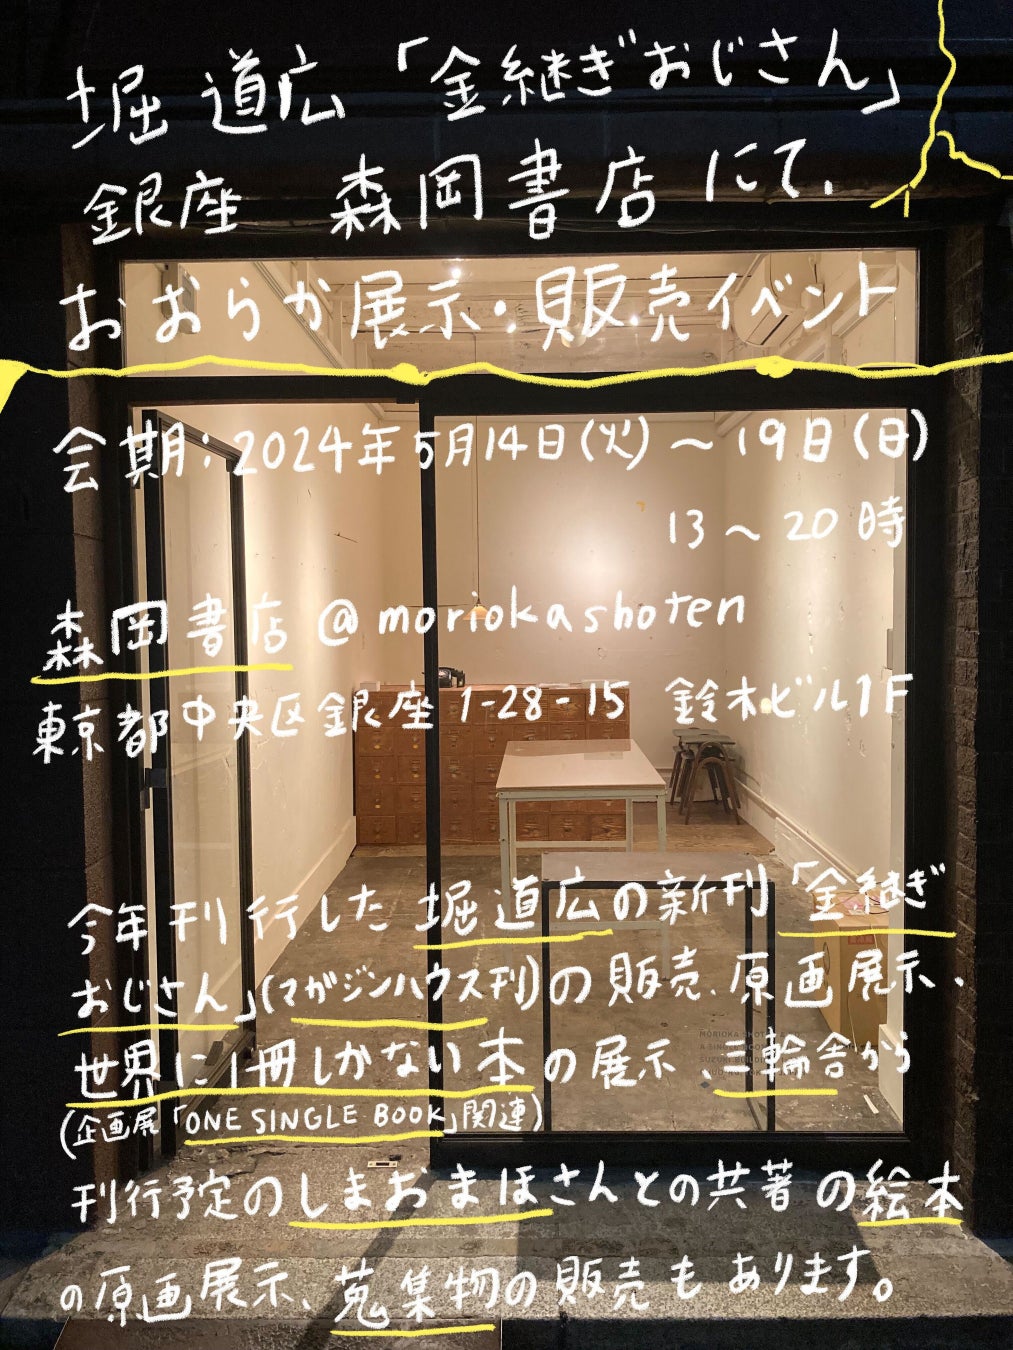 堀 道広「金継ぎおじさん」
銀座 森岡書店にて、
おおらか展示・販売イベント
会期:2024年5月14日(火)～19日(日)
13～20時
森岡書店 @moriokashoten
東京都中央区銀座1-28-15 鈴木ビル1F
今年刊行した堀道広の新刊「金継ぎ
おじさん」(マガジンハウス刊)の販売、原画展示、
世界に1冊しかない本の展示 三輪舎から
(企画展「ONE SINGLE BOOK」関連)
刊行予定のしまおまほさんとの共著の絵本
の原画展示、蒐集物の販売もあります。
MORIOKA SHOTEN